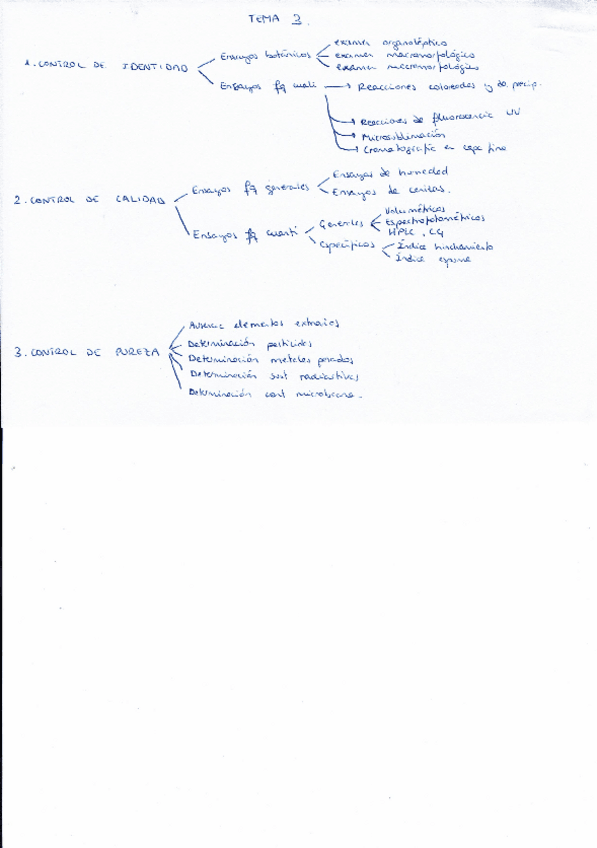 TEMA 3.
1. CONTROL DE IDENTIDAD
Ensayos botánicos
examen organoléptico
examen macromorfológico
exámen micromorfológico
Ensayos fq cuali
Reacciones coloreadas y de precip.
Reacciones de fluorescencia UV
Microsublimación
Cromatografía en capa fina
2. CONTROL DE CALIDAD
Ensayos fq generales
Ensayos de humedad
Ensayos de cenizas.
Ensayos fq cuanti
Generales
Volumétricos
Espectrofotométricos
HPLC, CG
Específicos
Índice hinchamiento
Índice espuma
3. CONTROL DE PUREZA
Ausencia elementos extraños
Determinación pesticidas
Determinación metales pesados
Determinación sust radiactivas
Determinación cont microbiana.